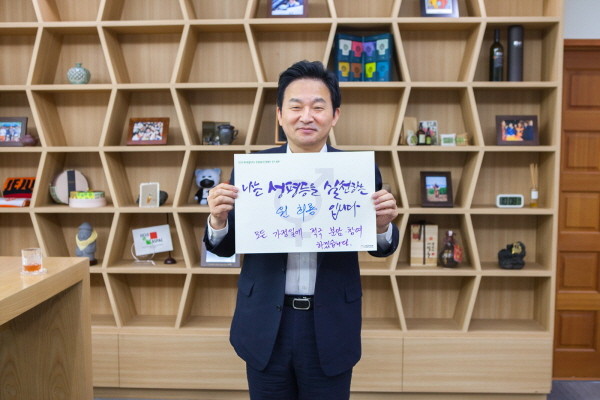 나는 성평등을 실천하는
원희룡 입니다
모든 가정일에 적극 분담 참여
하겠습니다.
JEJU